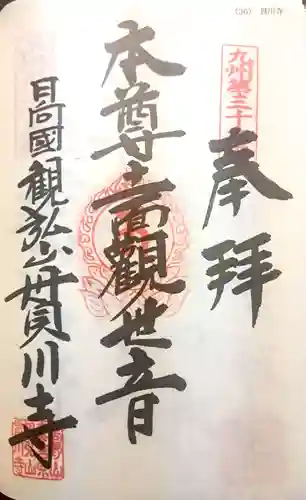 (36) 貫川寺
九州第三十
奉拝
本尊十一面観世音
日向國観弘山貫川寺